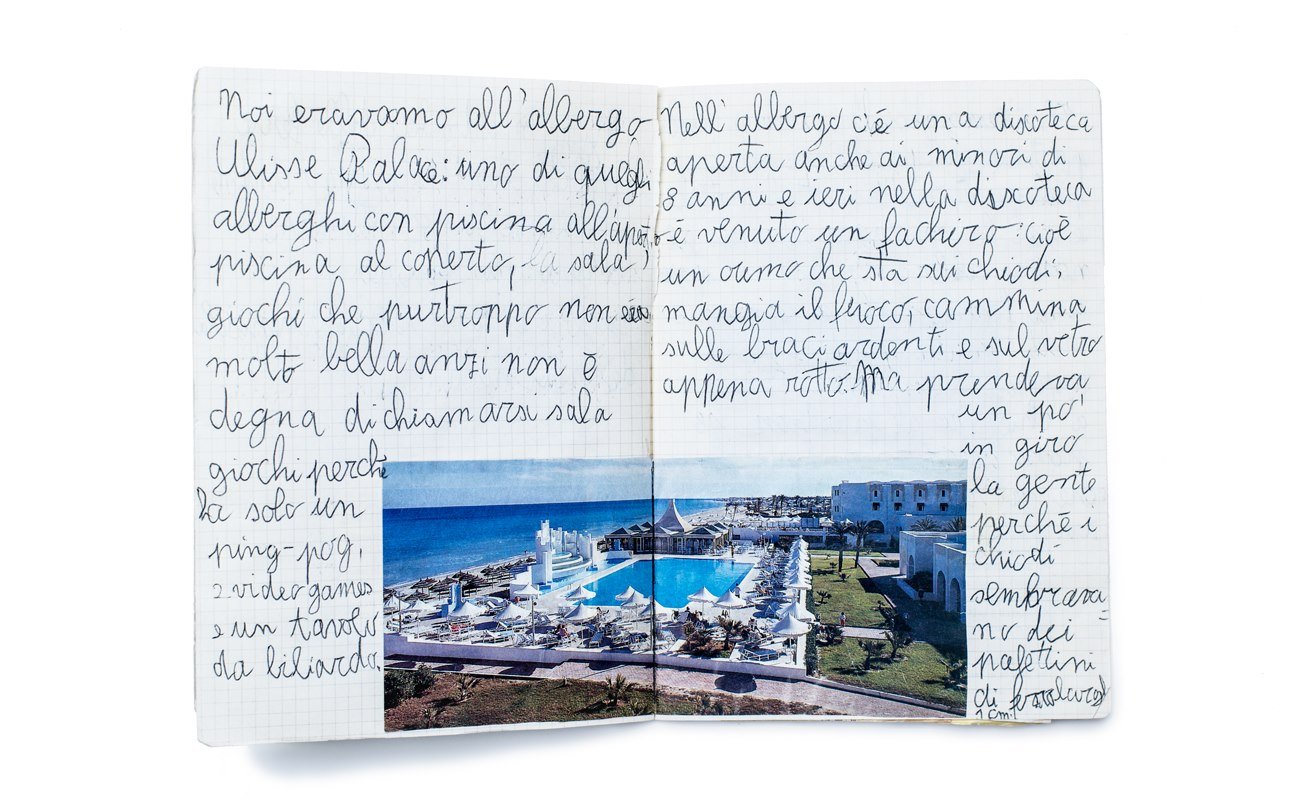 Noi eravamo all'albergo
Ulisse Palace: uno di quegli
alberghi con piscina all'aperto,
piscina al coperto, la sala
giochi che purtroppo non era
molto bella anzi non è
degna di chiamarsi sala
giochi perchè
ha solo un
ping-pog,
2 video games
e un tavolo
da biliardo.
Nell'albergo c'è una discoteca
aperta anche ai minori di
8 anni e ieri nella discoteca
è venuto un fachiro: cioè
un oumo che sta sui chiodi,
mangia il fuoco, cammina
sulle braci ardenti e sul vetro
appena rotto. Ma prendeva
un po'
in giro
la gente
perchè i
chiodi
sembrava=
no dei
paλettini
di
1 cm.!